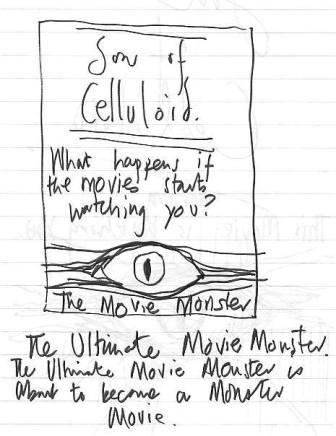 Son of
Celluloid.
What happens if
the movies starts
watching you?
The Movie Monster
The Ultimate Movie Monster.
The Ultimate Movie Monster is
about to become a Monster
Movie.